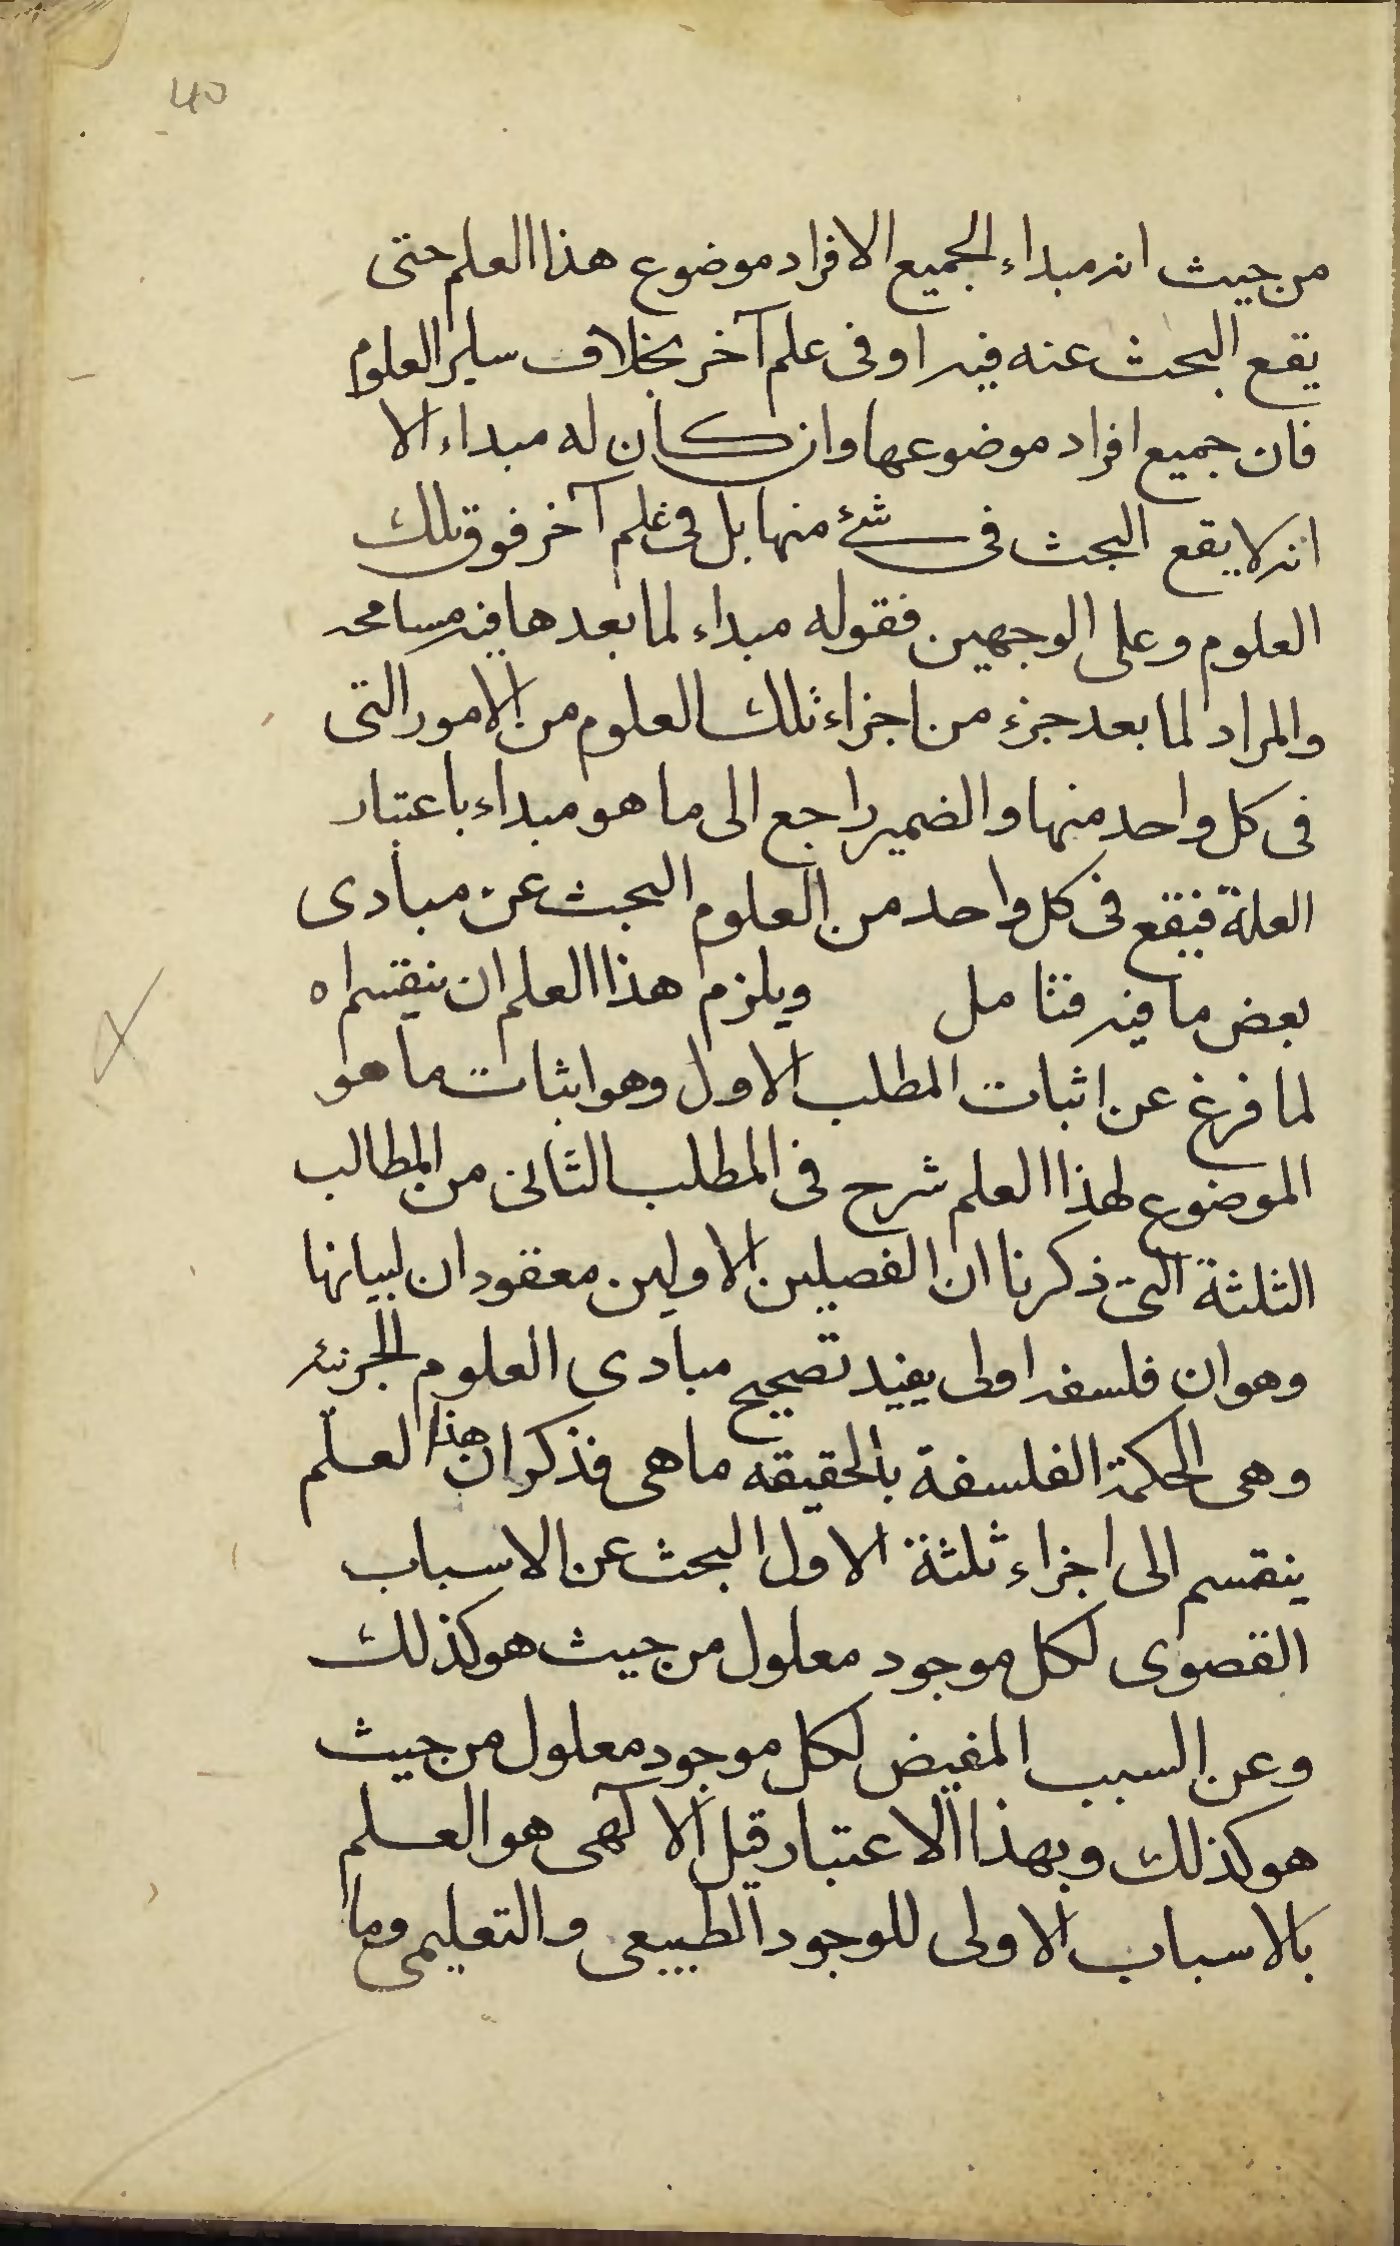 40
من حيث انه مبداء لجميع الافراد موضوع هذا العلم حتى
يقع البحث عنه فيه او فى علم آخر بخلاف ساير العلوم
فان جميع افراد موضوعها وان كان له مبداء الا
انه لا يقع البحث فى شئ منها بل فى علم آخر فوق تلك
العلوم وعلى الوجهين فقوله مبداء لما بعدها فيه مسامحه
والمراد لما بعد جزء من اجزاء تلك العلوم من الامور التى
فى كل واحد منها والضمير راجع الى ما هو مبداء باعتبار
العلة فيقع فى كل واحد من العلوم البحث عن مبادى
بعض ما فيه فتامل ويلزم هذا العلم ان ينقسم اه
لما فرغ عن اثبات المطلب الاول وهو اثبات ما هو
الموضوع لهذا العلم شرح فى المطلب الثانى من المطالب
الثلثة التى ذكرنا ان الفصلين الاولين معقودان لبيانها
وهو ان فلسفه اولى يفيد تصحيح مبادى العلوم الجزئيه
وهى الحكمة الفلسفة بالحقيقه ما هى فذكر ان هذا العلم
ينقسم الى اجزاء ثلثة الاول البحث عن الاسباب
القصوى لكل موجود معلول من حيث هو كذلك
وعن السبب المفيض لكل موجود معلول من حيث
هو كذلك وبهذا الاعتبار قيل الالهى هو العلم
بالاسباب الاولى للوجود الطبيعى والتعليمى وما